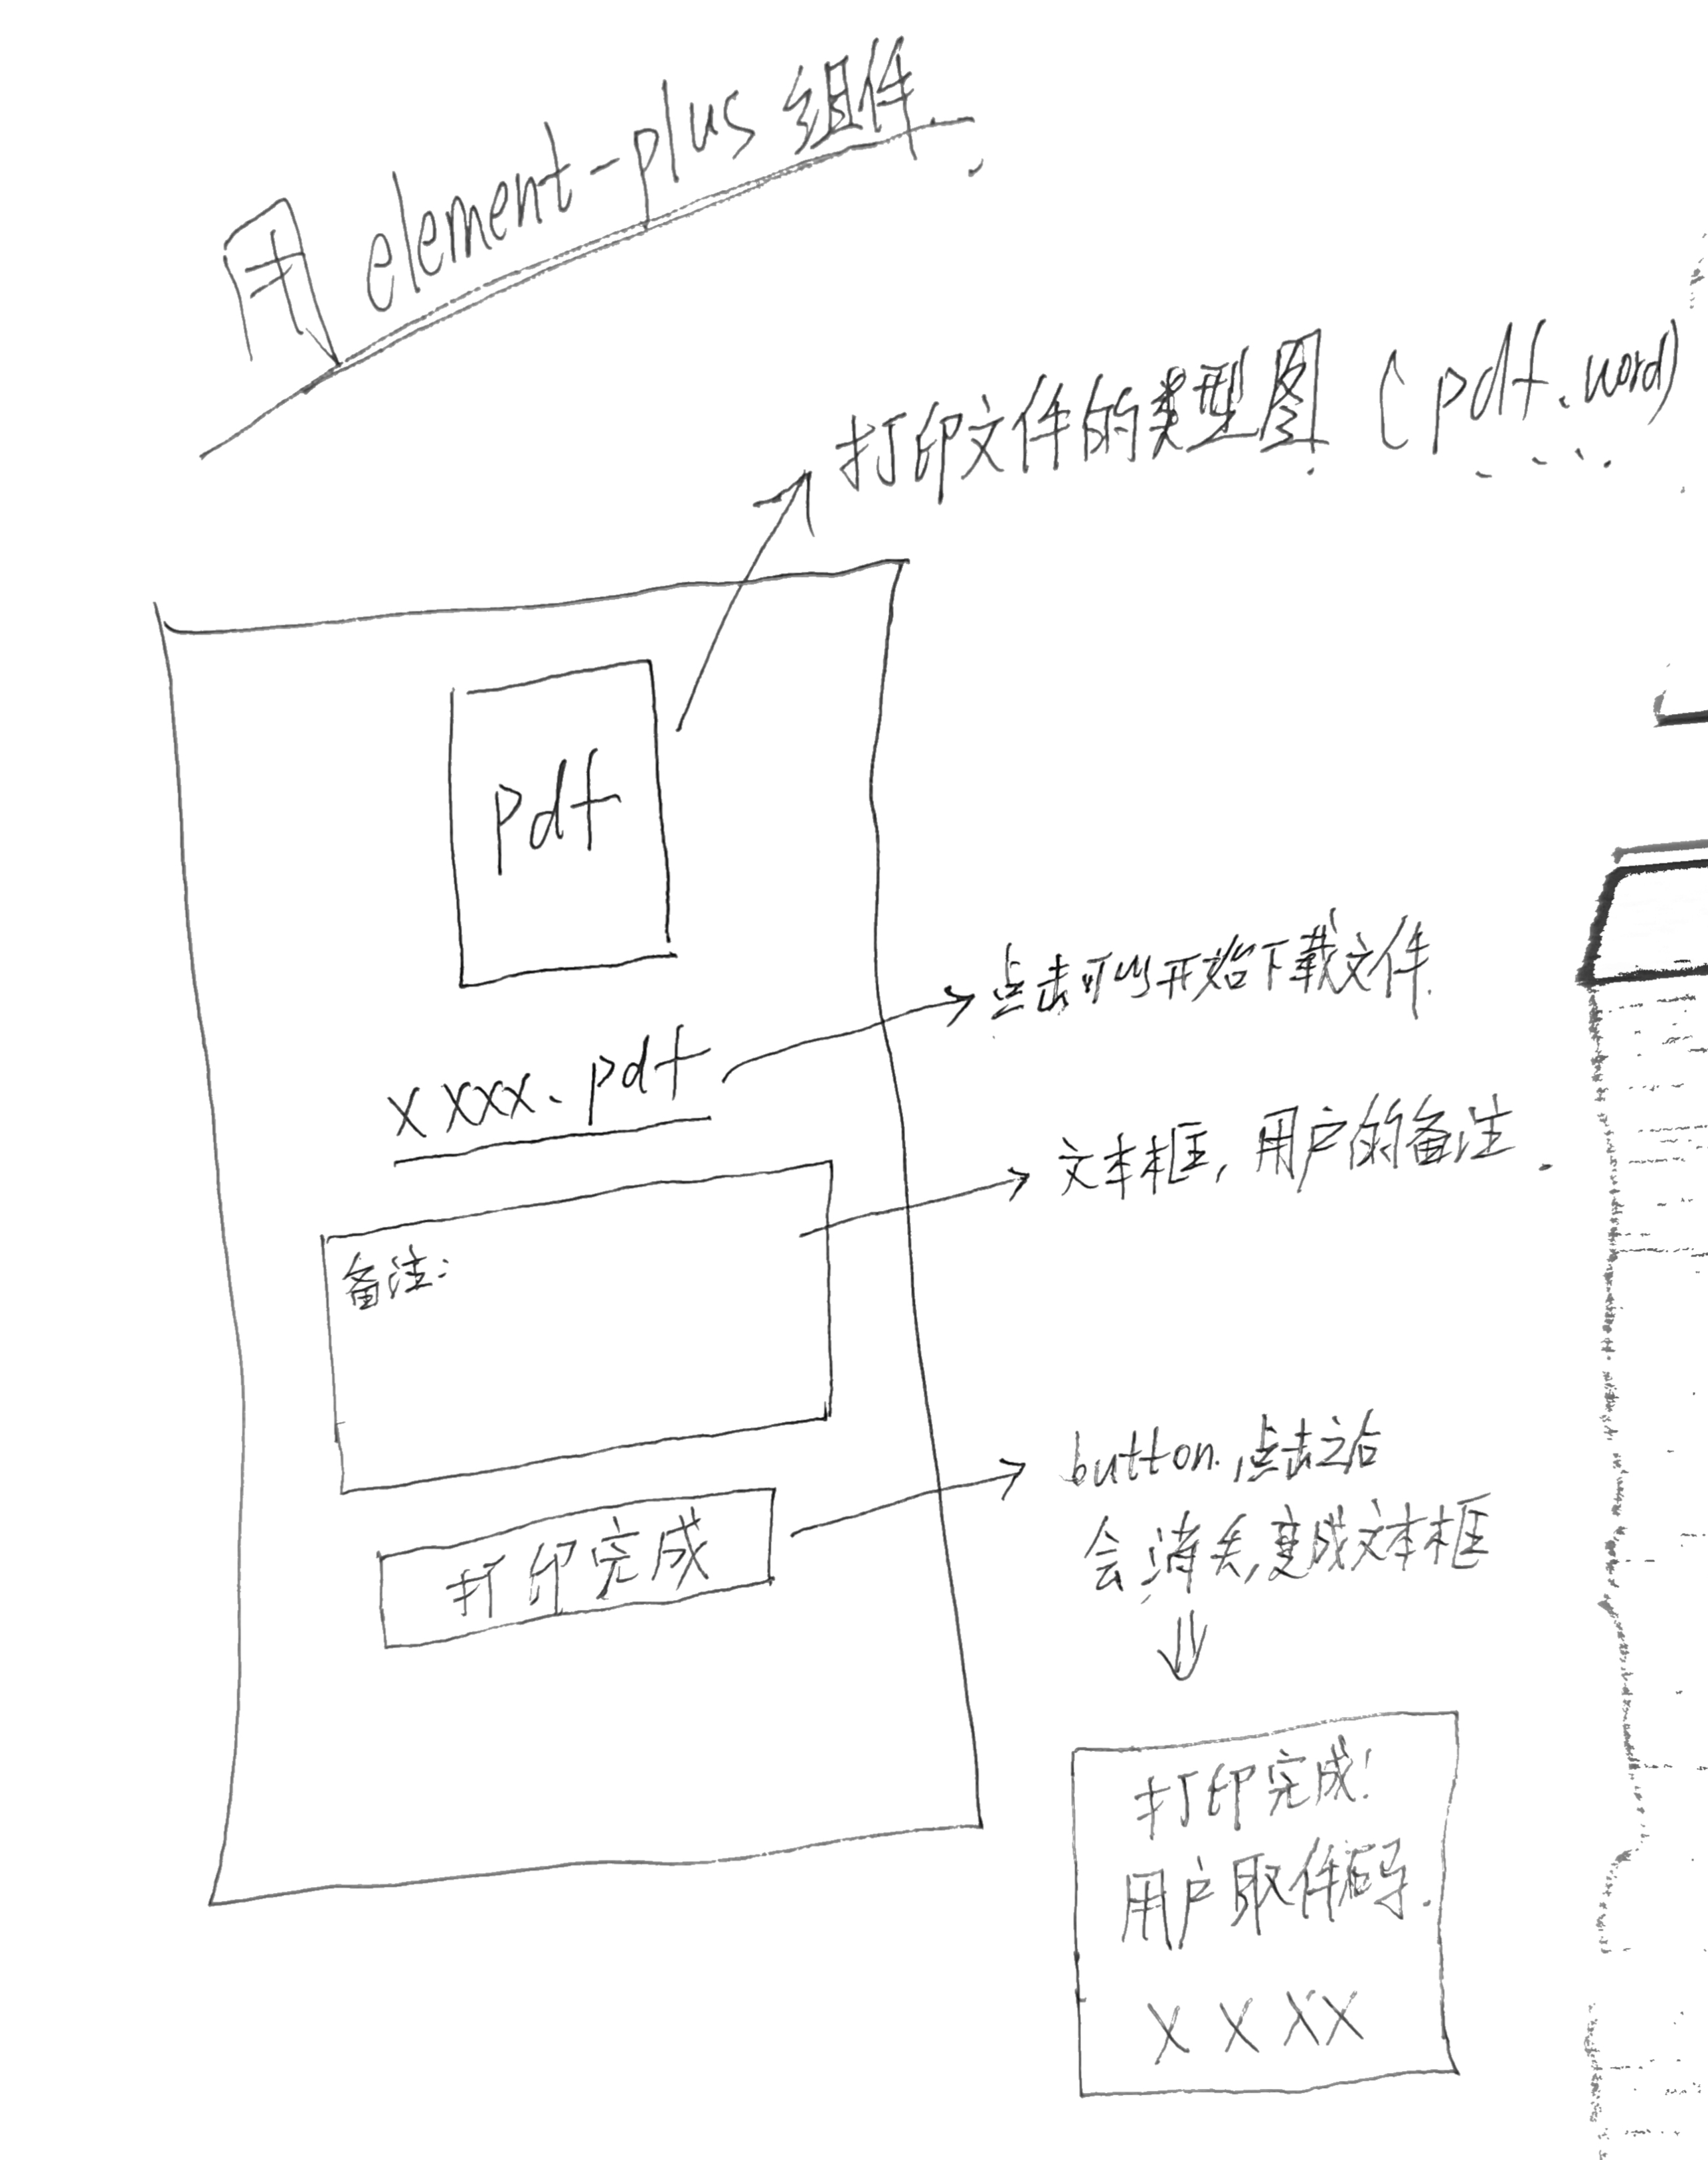 用 element-plus 组件.
打印文件的类型图 (pdf.word)
pdf
xxxx.pdf
点击可以开始下载文件.
备注:
文本框, 用户的备注.
打印完成
button.点击之后
会消失,变成文本框
打印完成!
用户取件码.
X X X X